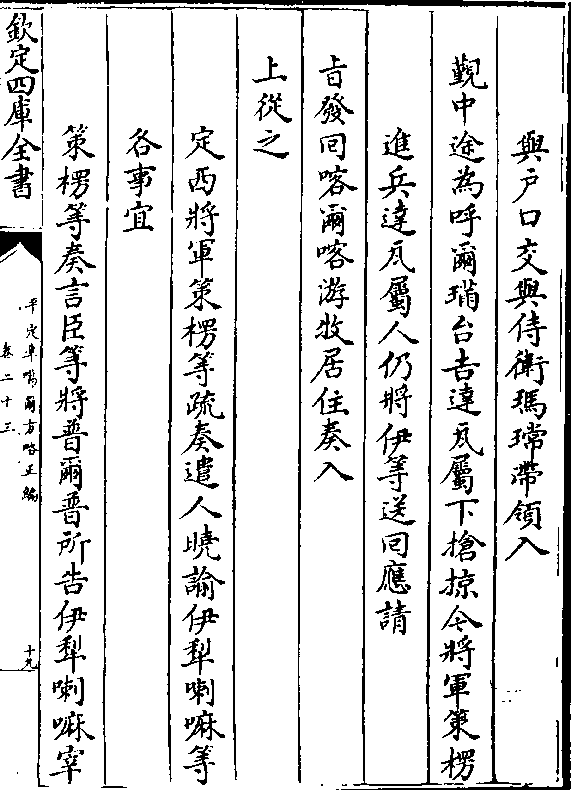 與户口交與侍衛瑪瑺帶領入
覲中途為呼爾璊台吉達瓦屬下搶掠今將軍策楞
進兵達瓦屬人仍將伊等送回應請
㫖發回喀爾喀游牧居住奏入
上從之
定西將軍策楞等疏奏遣人曉諭伊犁喇嘛等
各事宜
策楞等奏言臣等將普爾普所告伊犁喇嘛宰
欽定四庫全書
平定準噶爾方略正編
卷二十三
十九